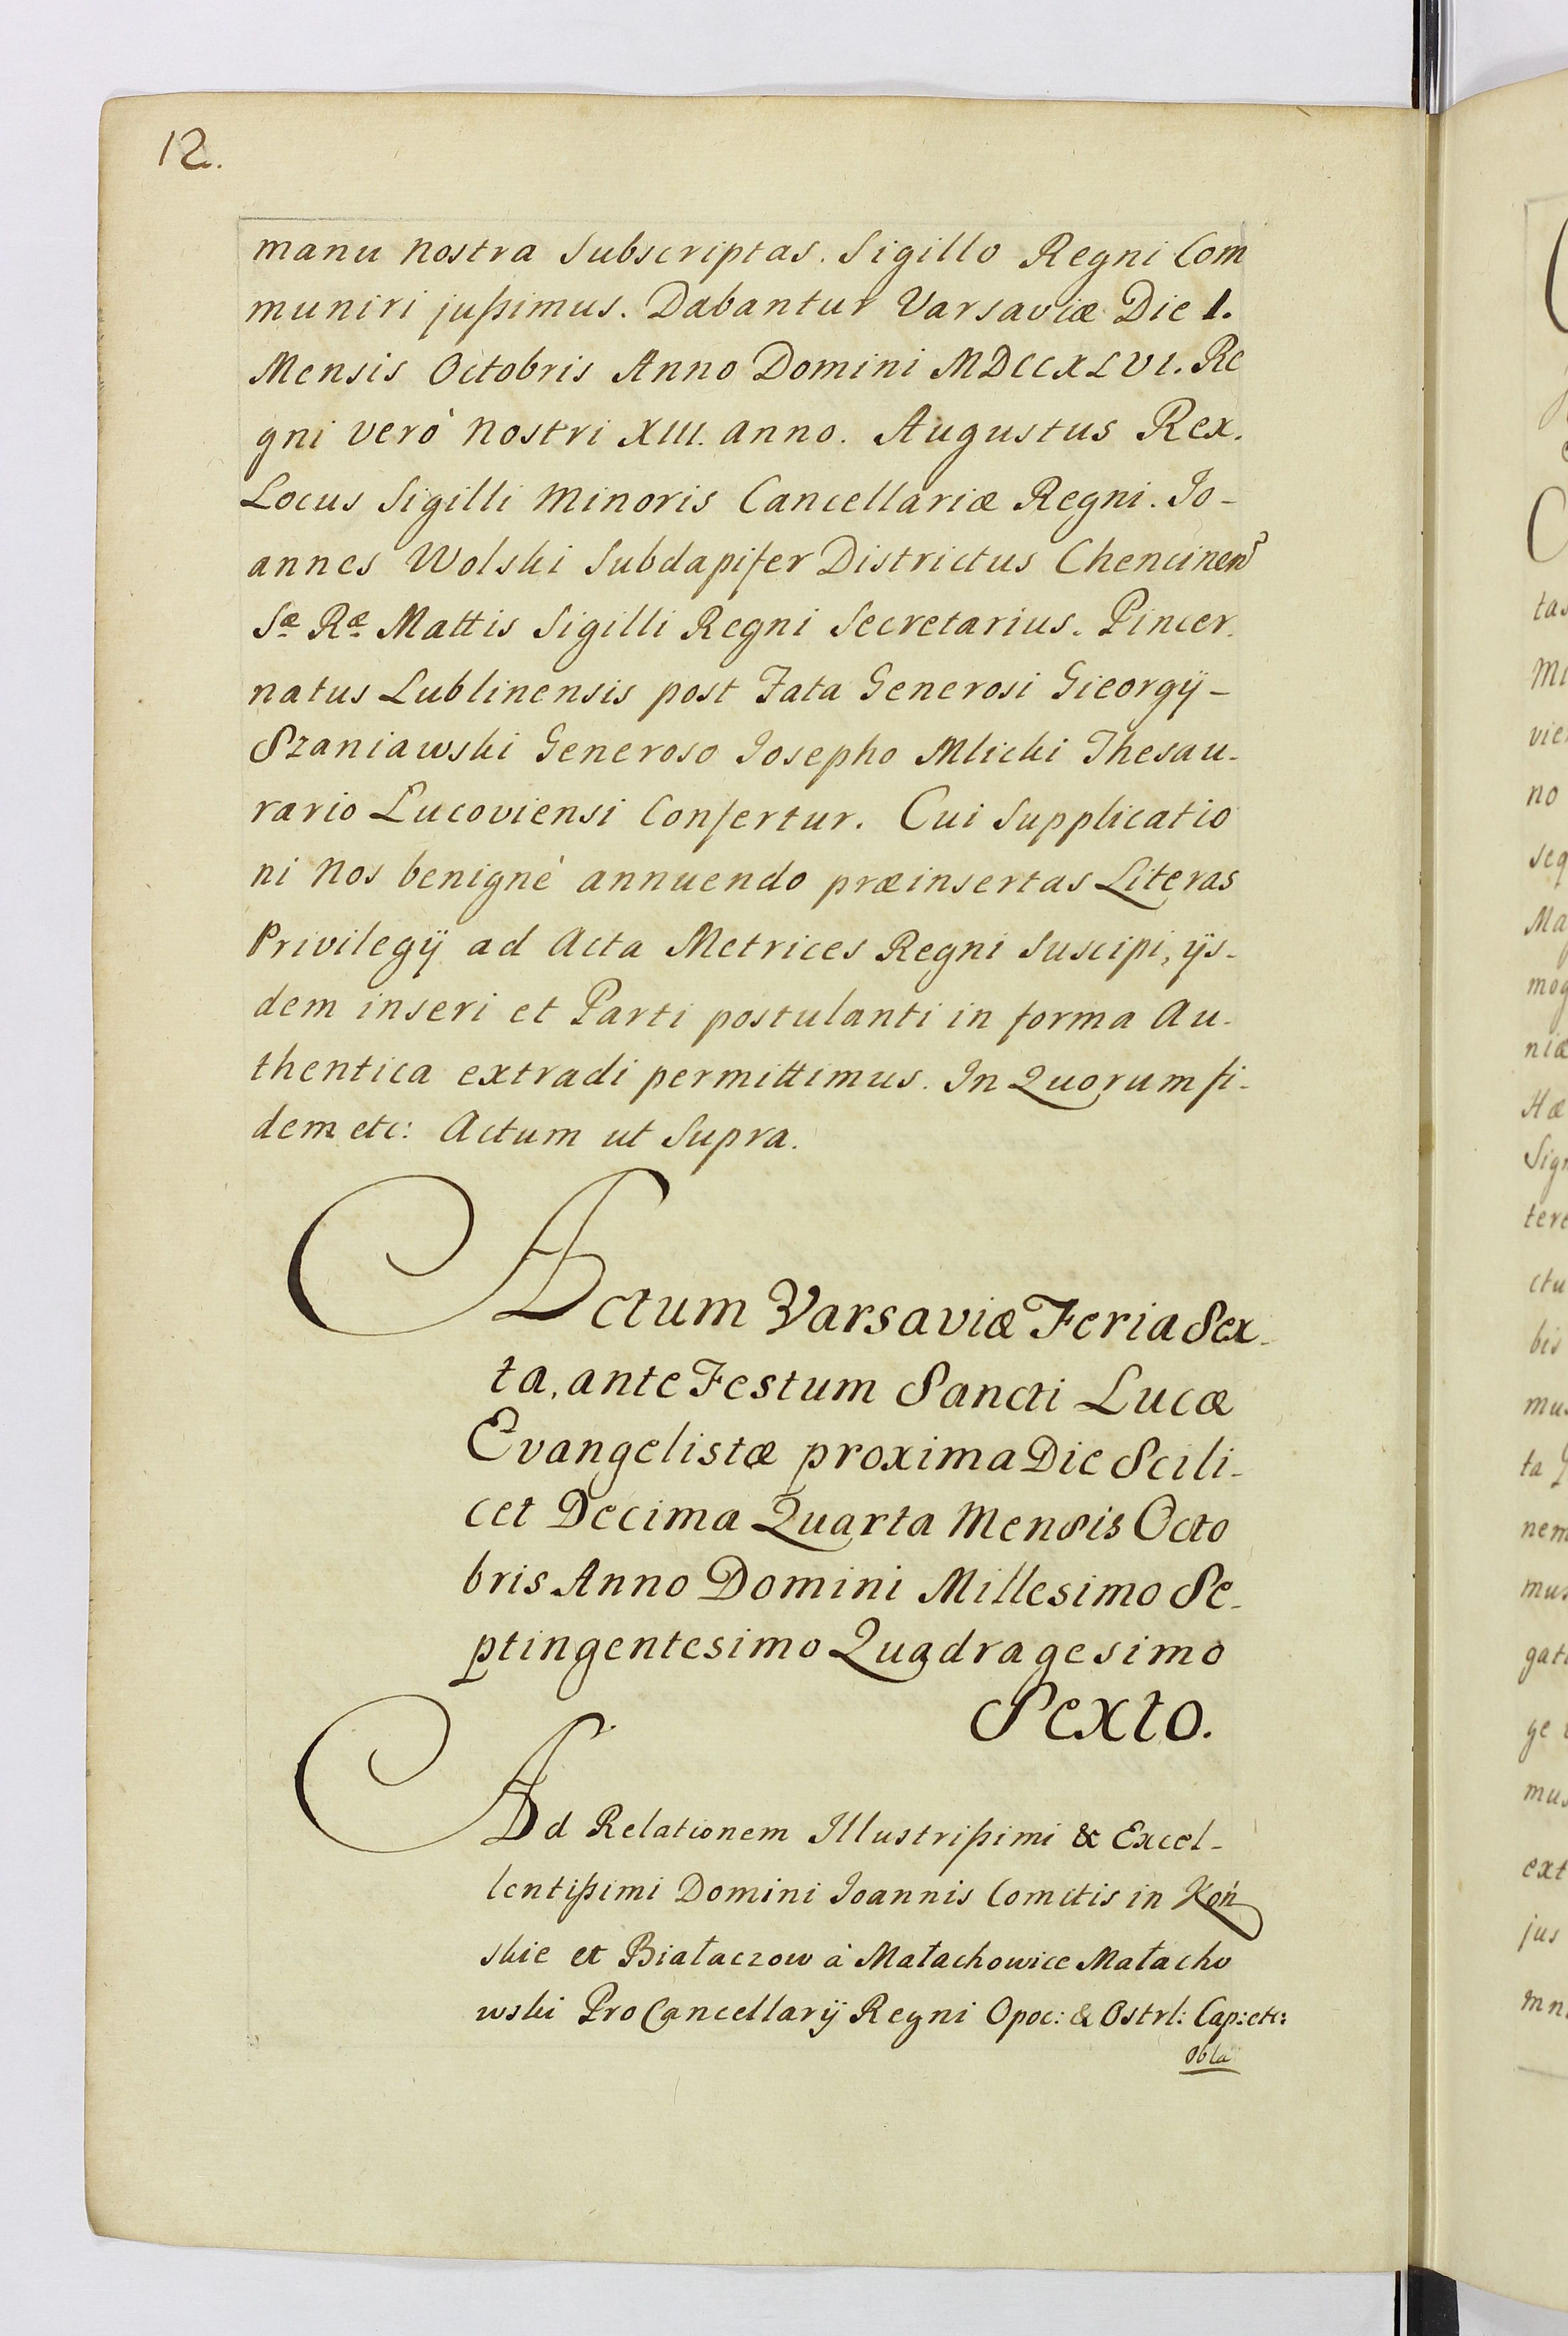 12.
manu nostra Subscriptas. Sigillo Regni Com
muniri jußimus. Dabantur Varsaviæ Die 1.
Mensis Octobris Anno Domini MDCCXLVI. Re
gni verò nostri XIII. anno. Augustus Rex.
Locus Sigilli Minoris Cancellariæ Regni. Jo-
annes Wolski Subdapifer Districtus Chencinens
Sæ Ræ Mattis Sigilli Regni Secretarius. Pincer.
natus Lublinensis post Fata Generosi Gieorgÿ-
Szaniawski Generoso Josepho Mlicki Thesau-
rario Lucoviensi Confertur. Cui Supplicatio
ni Nos benignè annuendo præinsertas Literas
Privilegÿ ad Acta Metrices Regni Suscipi, ÿs-
dem inseri et Parti postulanti in forma Au-
thentica extradi permittimus. In Quorum fi-
dem etc: Actum ut Supra.
Actum Varsaviæ Feria Sex-
ta, ante Festum Sancti Lucæ
Evangelistæ proxima Die Scili-
cet Decima Quarta Mensis Octo
bris Anno Domini Millesimo Se-
ptingentesimo Quadragesimo
Sexto.
Ad Relationem Illustrißimi & Excel-
lentißimi Domini Joannis Comitis in Koń
skie et Białaczow à Małachowice Małacho
wski ProCancellarÿ Regni Opoc: & Ostrl: Cap: etc:
Obla